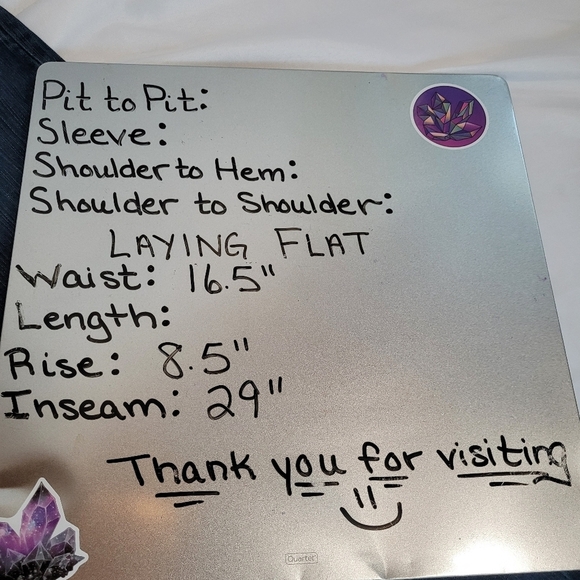 Pit to Pit:
Sleeve:
Shoulder to Hem:
Shoulder to Shoulder:
LAYING FLAT
Waist: 16.5"
Length:
Rise: 8.5"
Inseam: 29"
Thank you for visiting
Quartet